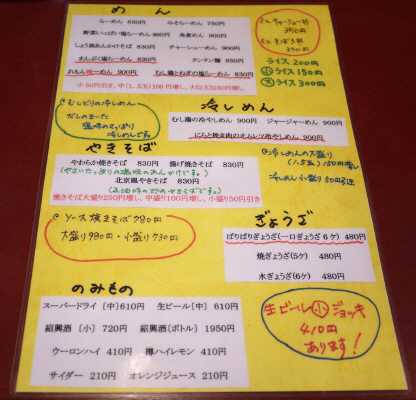 めん
らーめん 650円　みそらーめん 730円
野菜いっぱい塩らーめん 800円　角煮めん 900円
しょう油あんかけそば 830円　チャーシューめん 900円
まんぷく塩らーめん 830円　タンタン麺 850円
れもん塩らーめん 900円　むし鶏とねぎの塩らーめん 830円
小50円引き、中(1.5玉)100円増し、大(2玉)250円増し
ミニチャーシュー丼
350円
ミニそぼろ丼
350円
ライス 200円
小ライス 150円
大ライス 300円
むしどりの冷しめん
だしのきいた
塩味のさっぱり
冷しめんです。
冷しめん
むし鶏の冷やしめん 900円　ジャージャーめん 900円
にらと焼き肉のオムレツ冷やしめん 900円
冷しめんの大盛り
(1.5玉)150円増し
冷しめん小盛り 50円引き
やきそば
やわらか焼きそば 830円　揚げ焼きそば 830円
北京風やきそば 830円
焼きそば大盛り250円増し、中盛り100円増し、小盛り50円引き
ソース焼きそば780円
大盛り980円・小盛り730円
ぎょうざ
ぱりぱりぎょうざ(一口ぎょうざ6ケ) 480円
焼ぎょうざ(5ケ) 480円
水ぎょうざ(6ケ) 480円
のみもの
スーパードライ [中]610円　生ビール[中] 610円
紹興酒 [小] 720円　紹興酒[ボトル] 1950円
ウーロンハイ 410円　樽ハイレモン 410円
サイダー 210円　オレンジジュース 210円
生ビール小ジョッキ
410円
あります!